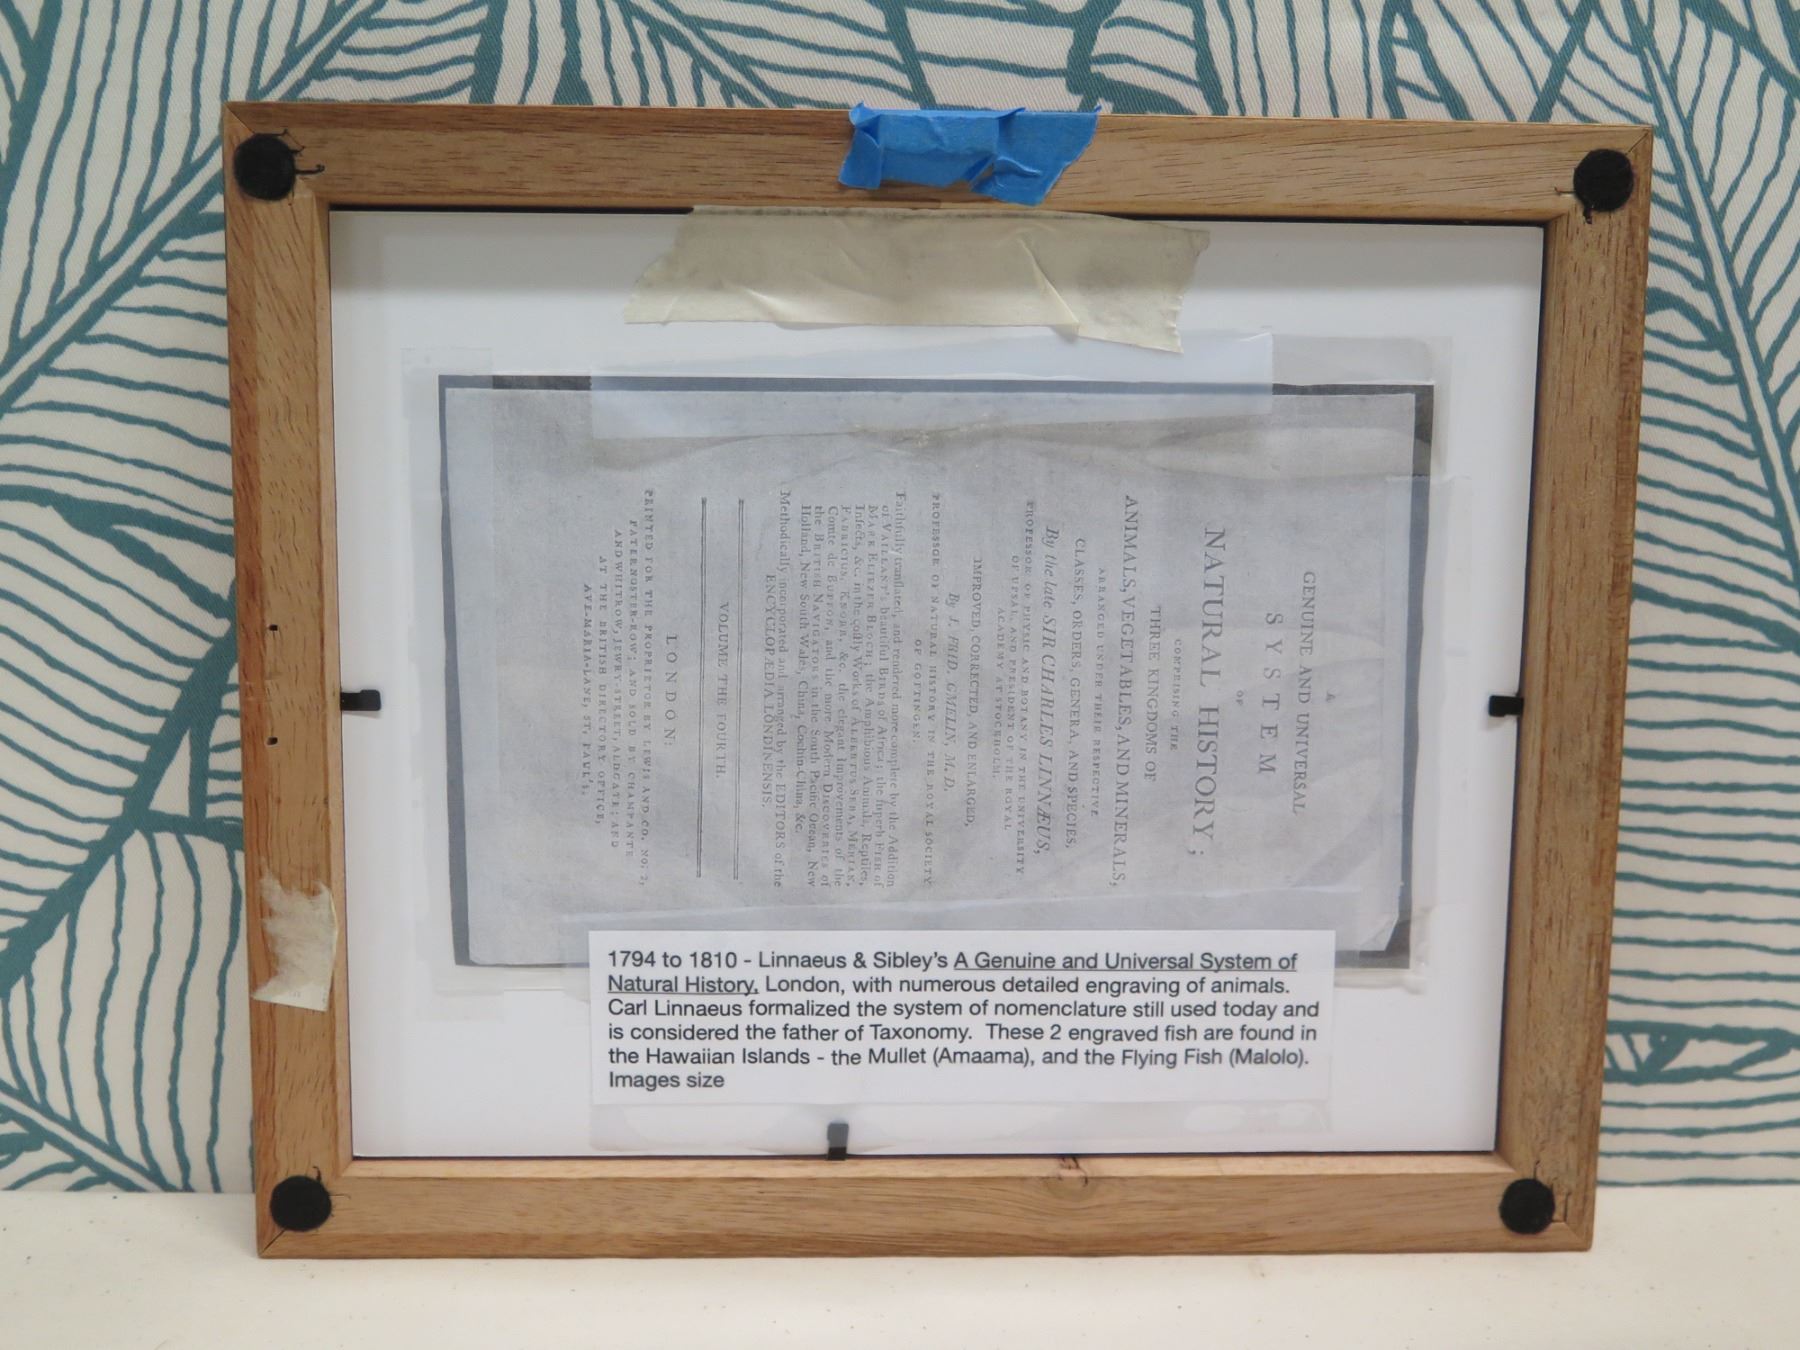 A
GENUINE AND UNIVERSAL
SYSTEM
OF
NATURAL HISTORY;
COMPRISING THE
THREE KINGDOMS OF
ANIMALS, VEGETABLES, AND MINERALS,
ARRANGED UNDER THEIR RESPECTIVE
CLASSES, ORDERS, GENERA, AND SPECIES,
By the late SIR CHARLES LINNÆUS,
PROFESSOR OF PHYSIC AND BOTANY IN THE UNIVERSITY
OF UPSAL, AND PRESIDENT OF THE ROYAL
ACADEMY AT STOCKHOLM.
IMPROVED, CORRECTED, AND ENLARGED,
By J. FRID. GMELIN, M.D.
PROFESSOR OF NATURAL HISTORY IN THE ROYAL SOCIETY
OF GOTTINGEN.
Faithfully translated, and rendered more complete by the Addition
of VAILLANT's beautiful BIRDS of Africa; the superb FISH of
MARK ELIEZER BLOCH; the Amphibious Animals, Reptiles,
Insects, &c. in the costly Works of ALBERTUS SEBA, MERIAN,
FABRICIUS, KNORR, &c. the elegant Improvements of the
Comte de BUFFON, and the more Modern DISCOVERIES of
the BRITISH NAVIGATORS in the South Pacific Ocean, New
Holland, New South Wales, China, Cochin-China, &c.
Methodically incorporated and arranged by the EDITORS of the
ENCYCLOPÆDIA LONDINENSIS.
VOLUME THE FOURTH.
LONDON:
PRINTED FOR THE PROPRIETOR BY LEWIS AND CO. NO. 2,
PATERNOSTER-ROW; AND SOLD BY CHAMPANTE
AND WHITROW, JEWRY-STREET, ALDGATE; AND
AT THE BRITISH DIRECTORY OFFICE,
AVE-MARIA-LANE, ST. PAUL's.
1794 to 1810 - Linnaeus & Sibley's A Genuine and Universal System of
Natural History, London, with numerous detailed engraving of animals.
Carl Linnaeus formalized the system of nomenclature still used today and
is considered the father of Taxonomy. These 2 engraved fish are found in
the Hawaiian Islands - the Mullet (Amaama), and the Flying Fish (Malolo).
Images size